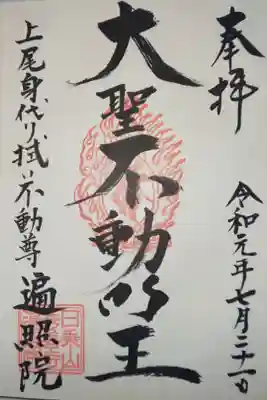 奉拝
令和元年七月二十一日
大聖不動明王
上尾身代り拭い不動尊
遍照院
日乗山